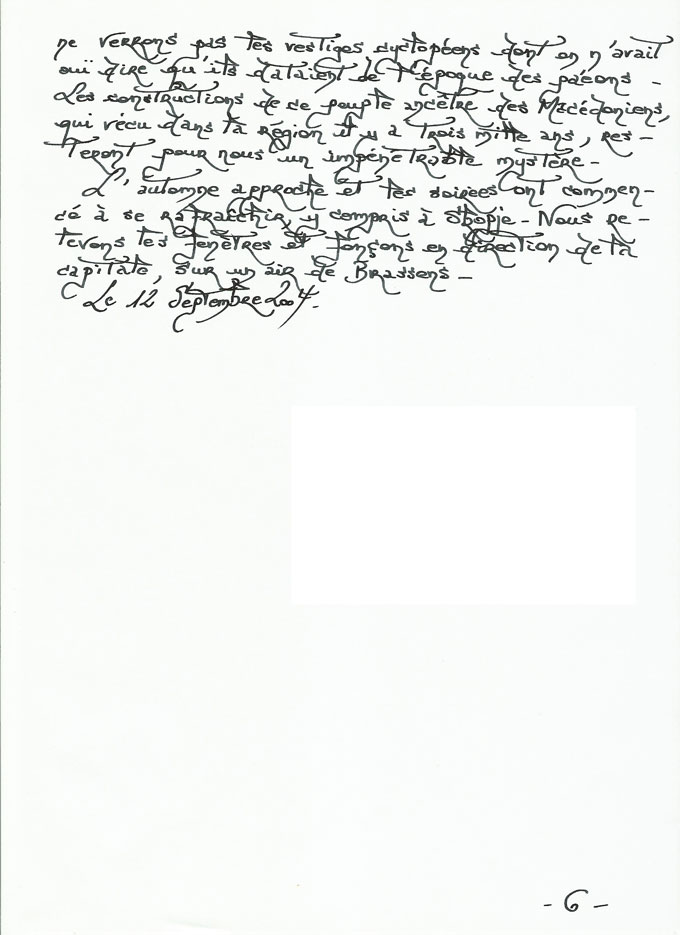 ne verrons pas les vestiges cyclopéens dont on n'avait
ouï dire qu'ils dataient de l'époque des paéons -
Les constructions de ce peuple ancêtre des Macédoniens,
qui vécu dans la région il y a trois mille ans, res -
teront pour nous un impénétrable mystère -
L'automne approche et les soirées ont commen -
cé à se rafraîchir, y compris à Skopje - Nous re -
levons les fenêtres et fonçons en direction de la
capitale, sur un air de Brassens -
Le 12 Septembre 2004.
- 6 -